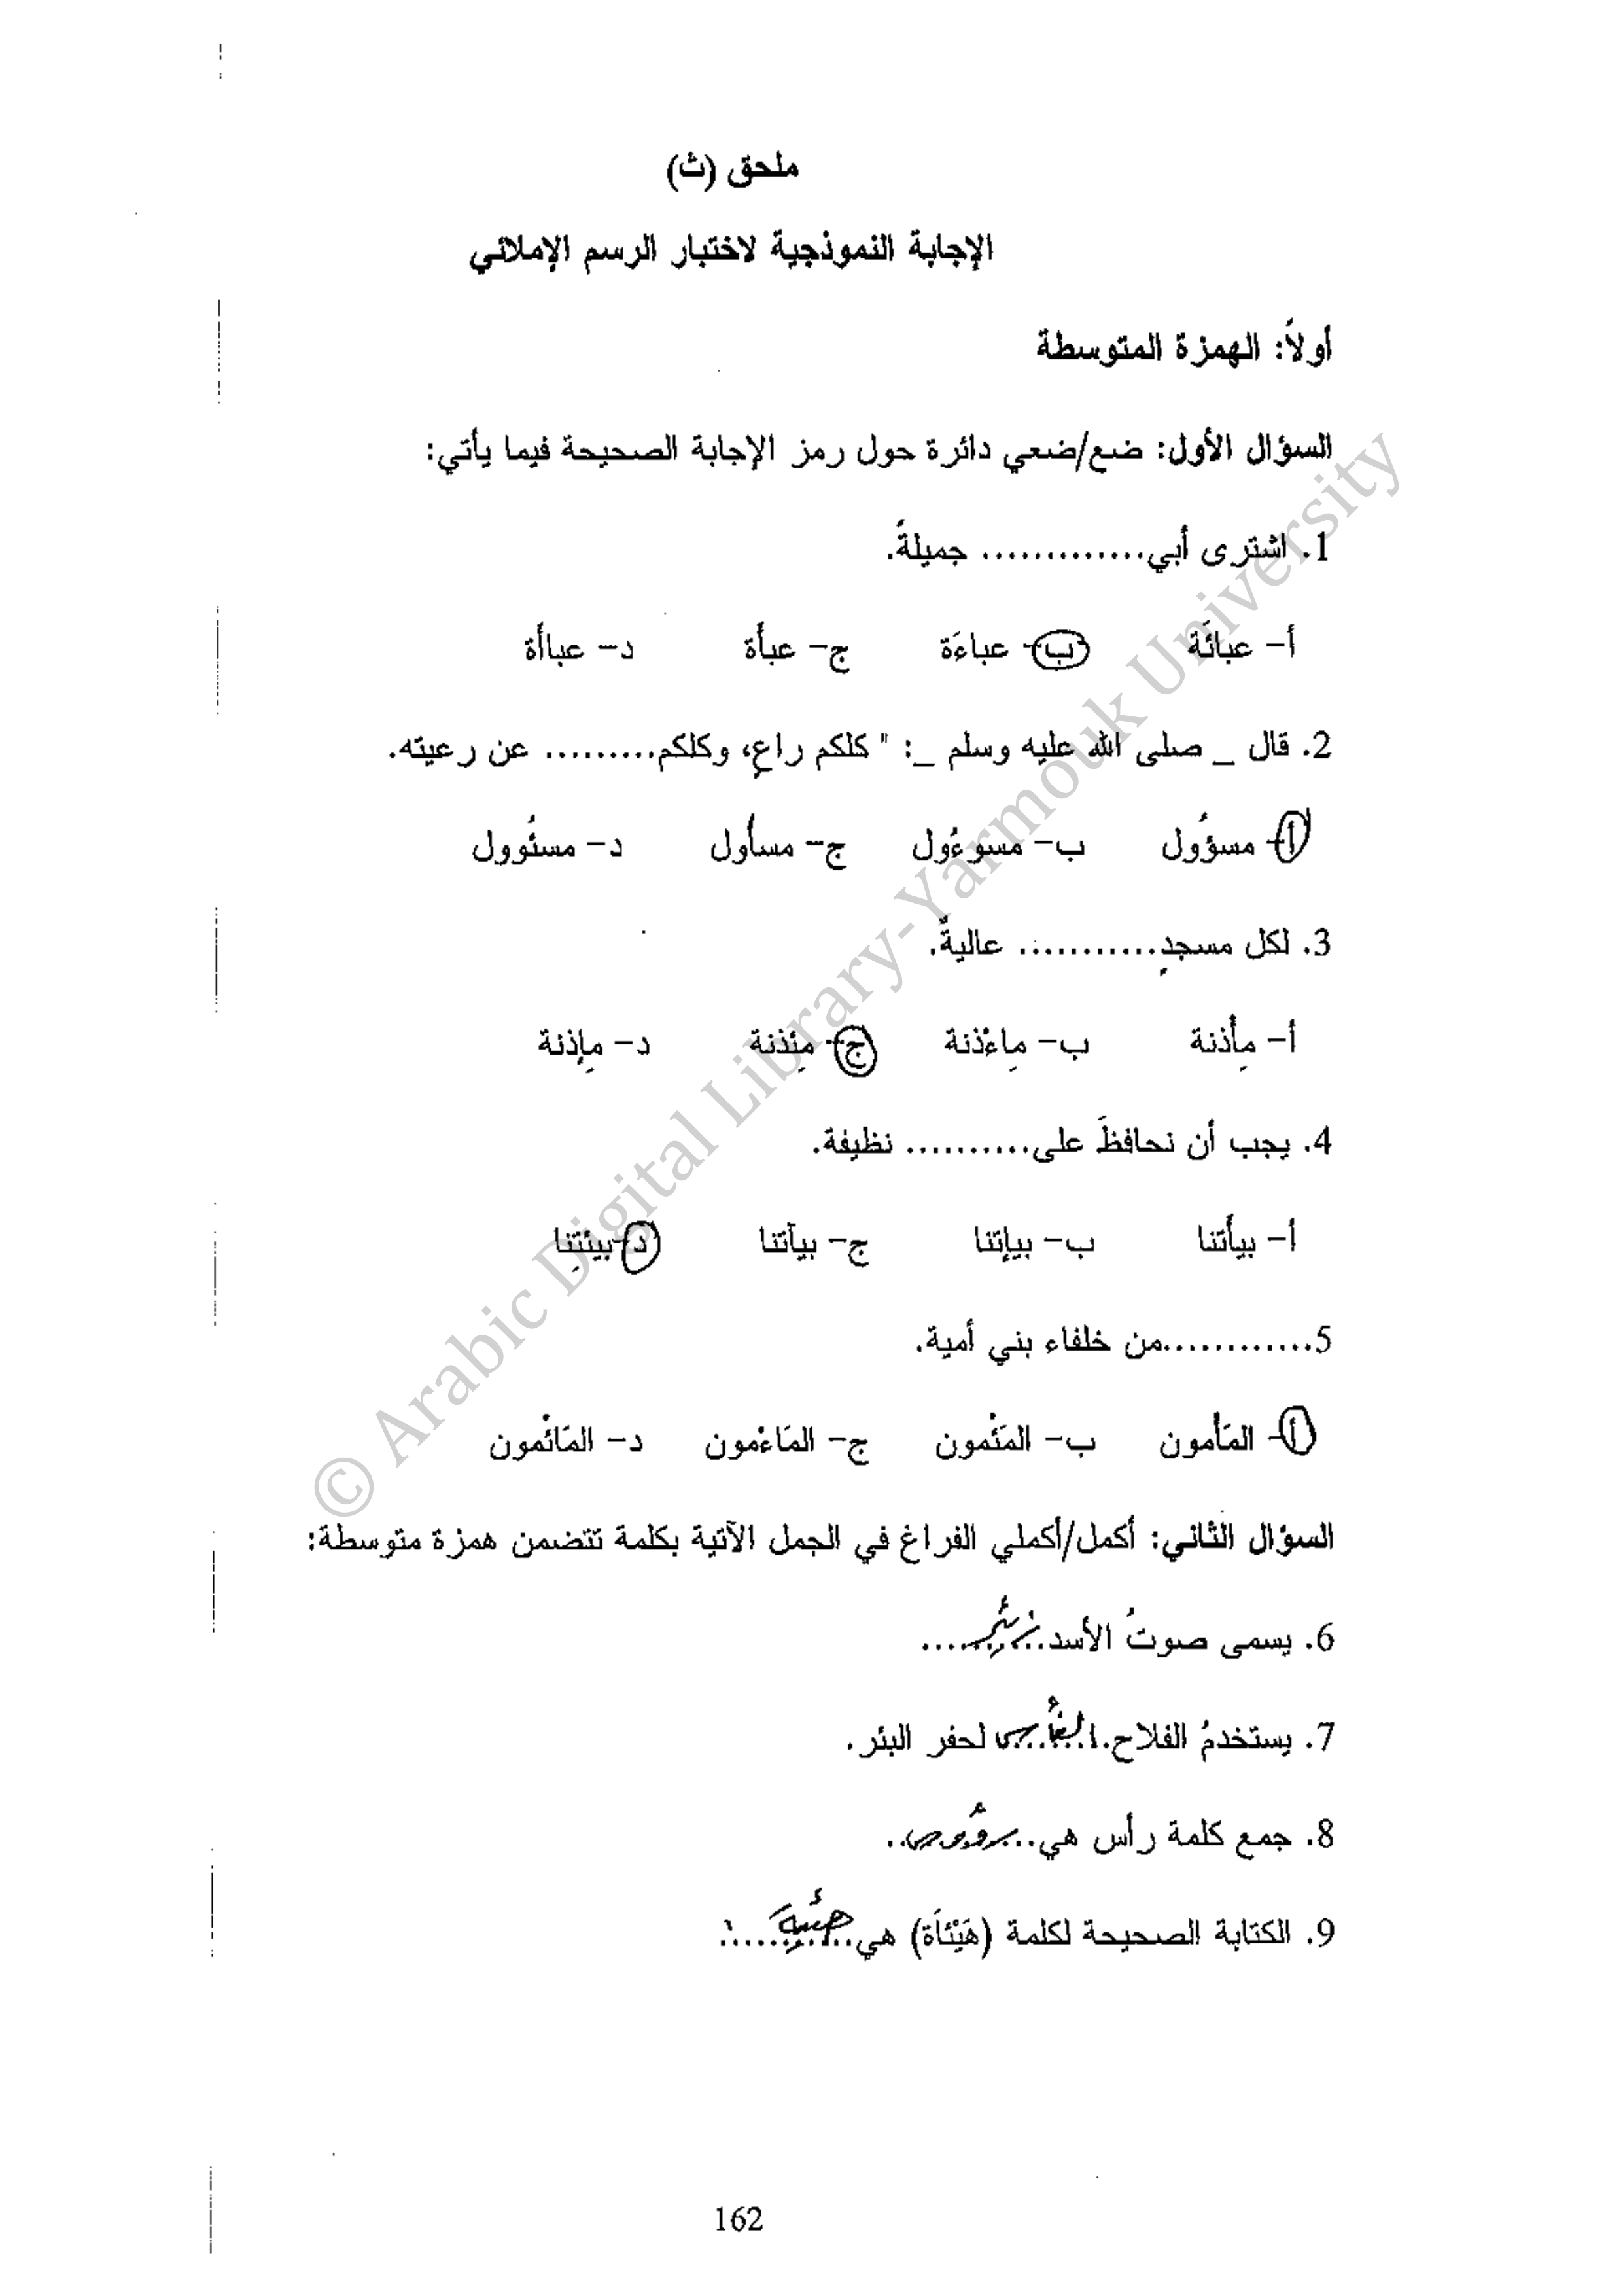 ملحق (ث)
الإجابة النموذجية لاختبار الرسم الإملائي
أولاً: الهمزة المتوسطة
السؤال الأول: ضع/ضعي دائرة حول رمز الإجابة الصحيحة فيما يأتي:
1. اشترى أبي............. جميلةً.
أ- عبائَة ب- عباءَة ج- عبأَة د- عباأَة
2. قال _ صلى الله عليه وسلم _: " كلكم راعٍ، وكلكم......... عن رعيته.
أ- مسؤُول ب- مسوءُول ج- مسأُول د- مسئُوول
3. لكل مسجدٍ........... عاليةٌ.
أ- مِأْذنة ب- مِاءْذنة ج- مِئْذنة د- مِإذنة
4. يجب أن نحافظَ على.......... نظيفة.
أ- بيأتنا ب- بيإتنا ج- بيآتنا د- بيئتِنا
5............من خلفاء بني أمية.
أ- المَأْمون ب- المَئْمون ج- المَاءْمون د- المَائْمون
السؤال الثاني: أكمل/أكملي الفراغ في الجمل الآتية بكلمة تتضمن همزة متوسطة:
6. يسمى صوتُ الأسد..زئير....
7. يستخدمُ الفلاح.الفأس لحفر البئر.
8. جمع كلمة رأس هي..رؤوس..
9. الكتابة الصحيحة لكلمة (هَيْئَأَة) هي..هيئة....
162
© Arabic Digital Library-Yarmouk University